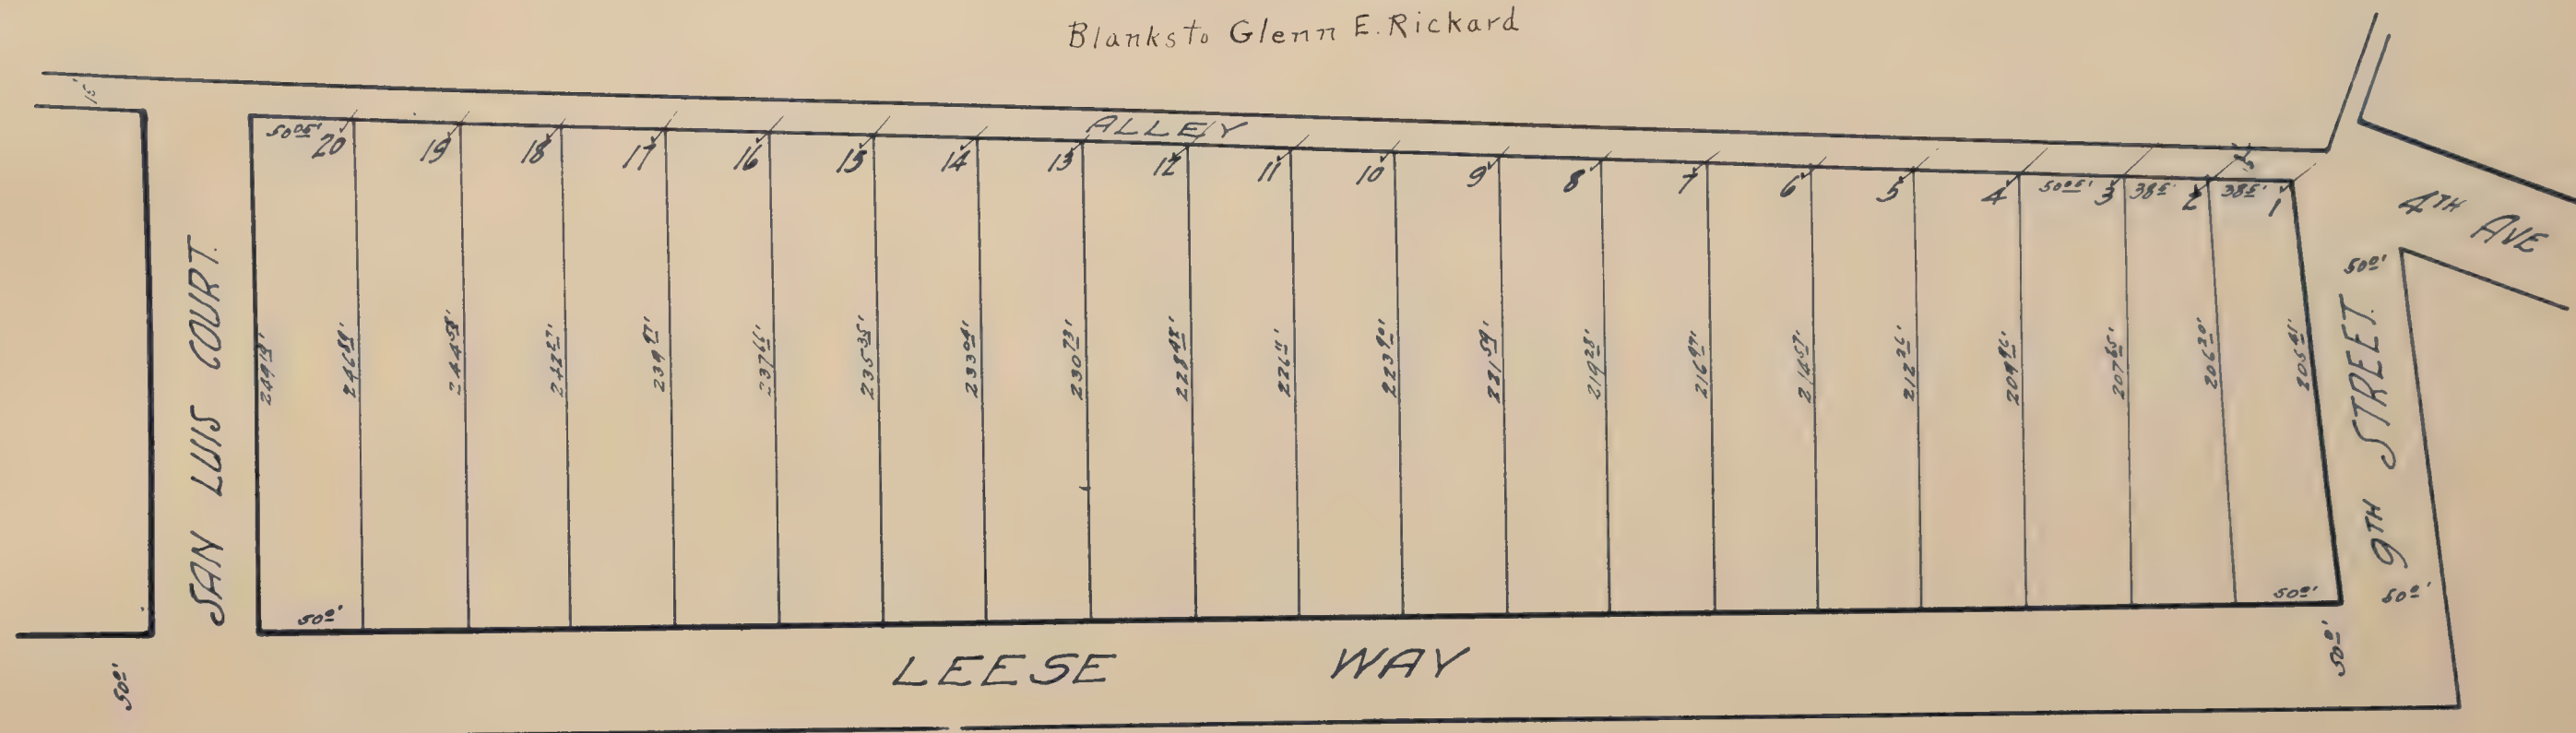 Blanks to Glenn E. Rickard
15'
ALLEY
50.05' 20 19 18 17 16 15 14 13 12 11 10 9 8 7 6 5 4 50.05' 3 38.5' 2 38.5' 1
15'
4TH AVE
50.0'
SAN LUIS COURT.
249.19' 246.89' 244.58' 242.27' 239.97' 237.66' 235.35' 233.04' 230.73' 228.42' 226.11' 223.90' 221.59' 219.28' 216.97' 214.57' 212.26' 209.96' 207.65' 206.30' 205.41'
9TH STREET.
50.0' 50.0' 50.0'
50.0' 50.0'
LEESE WAY